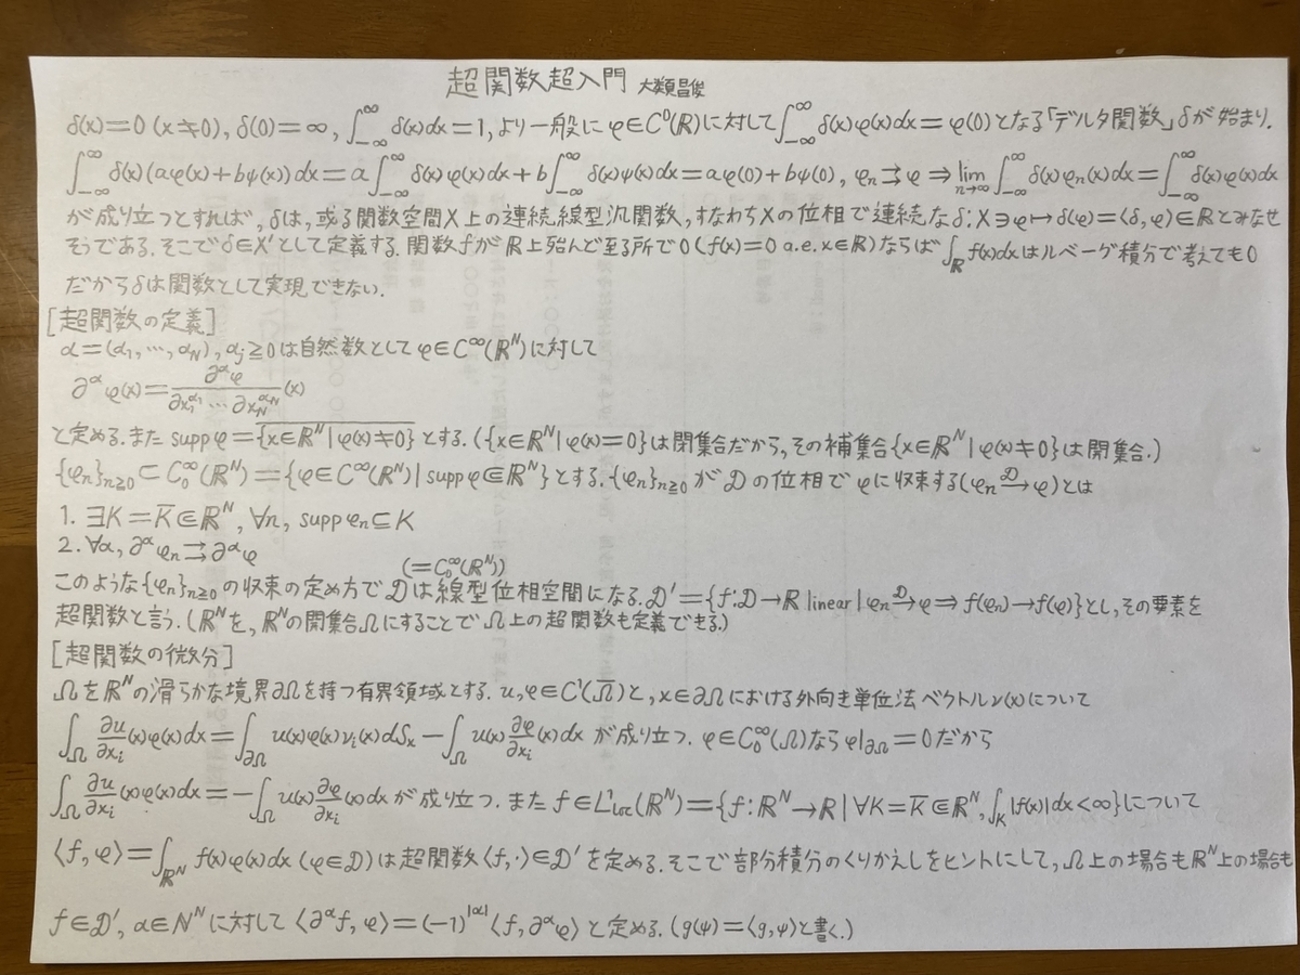 超関数超入門 大類昌俊
δ(x)=0 (x≠0), δ(0)=∞, ∫_{-∞}^{∞} δ(x)dx=1, より一般に φ∈C⁰(ℝ)に対して∫_{-∞}^{∞} δ(x)φ(x)dx=φ(0)となる「デルタ関数」δが始まり.
∫_{-∞}^{∞} δ(x)(aφ(x)+bψ(x))dx=a∫_{-∞}^{∞} δ(x)φ(x)dx+b∫_{-∞}^{∞} δ(x)ψ(x)dx=aφ(0)+bψ(0), φ_n⇉φ ⇒ lim_{n→∞}∫_{-∞}^{∞} δ(x)φ_n(x)dx=∫_{-∞}^{∞} δ(x)φ(x)dx
が成り立つとすれば, δは, 或る関数空間X上の連続線型汎関数, すなわちXの位相で連続なδ:X∋φ↦δ(φ)=⟨δ,φ⟩∈ℝとみなせ
そうである. そこでδ∈X'として定義する. 関数fがℝ上殆んど至る所で0(f(x)=0 a.e. x∈ℝ)ならば∫_ℝ f(x)dxはルベーグ積分で考えても0
だからδは関数として実現できない.
[超関数の定義]
α=(α₁,…,α_N), α_j≧0は自然数としてφ∈C^∞(ℝ^N)に対して
∂^αφ(x)=\frac{∂^αφ}{∂x₁^{α₁}…∂x_N^{α_N}}(x)
と定める. また supp φ=\overline{{x∈ℝ^N|φ(x)≠0}} とする. ({x∈ℝ^N|φ(x)=0}は閉集合だから, その補集合{x∈ℝ^N|φ(x)≠0}は開集合.)
{φ_n}_{n≧0}⊂C₀^∞(ℝ^N)={φ∈C^∞(ℝ^N)|supp φ⋐ℝ^N}とする. {φ_n}_{n≧0}が𝒟の位相でφに収束する(φ_n \xrightarrow{𝒟} φ)とは
1. ∃K=\overline{K}⋐ℝ^N, ∀n, supp φ_n⊆K
2. ∀α, ∂^αφ_n⇉∂^αφ
(=C₀^∞(ℝ^N))
このような{φ_n}_{n≧0}の収束の定め方で𝒟は線型位相空間になる. 𝒟'={f:𝒟→ℝ linear|φ_n \xrightarrow{𝒟} φ⇒f(φ_n)→f(φ)}とし, その要素を
超関数と言う. (ℝ^Nを, ℝ^Nの開集合ΩにすることでΩ上の超関数も定義できる.)
[超関数の微分]
Ωをℝ^Nの滑らかな境界∂Ωを持つ有界領域とする. u,φ∈C¹(\overline{Ω})と, x∈∂Ωにおける外向き単位法ベクトルν(x)について
∫_Ω \frac{∂u}{∂x_i}(x)φ(x)dx=∫_{∂Ω} u(x)φ(x)ν_i(x)dS_x−∫_Ω u(x)\frac{∂φ}{∂x_i}(x)dx が成り立つ. φ∈C₀^∞(Ω)ならφ|_{∂Ω}=0だから
∫_Ω \frac{∂u}{∂x_i}(x)φ(x)dx=−∫_Ω u(x)\frac{∂φ}{∂x_i}(x)dxが成り立つ. また f∈L¹_{loc}(ℝ^N)={f:ℝ^N→ℝ|∀K=\overline{K}⋐ℝ^N, ∫_K|f(x)|dx<∞}について
⟨f,φ⟩=∫_{ℝ^N} f(x)φ(x)dx (φ∈𝒟)は超関数⟨f,·⟩∈𝒟'を定める. そこで部分積分のくりかえしをヒントにして, Ω上の場合もℝ^N上の場合も
f∈𝒟', α∈ℕ^Nに対して⟨∂^αf,φ⟩=(-1)^{|α|}⟨f,∂^αφ⟩と定める. (g(ψ)=⟨g,ψ⟩と書く.)